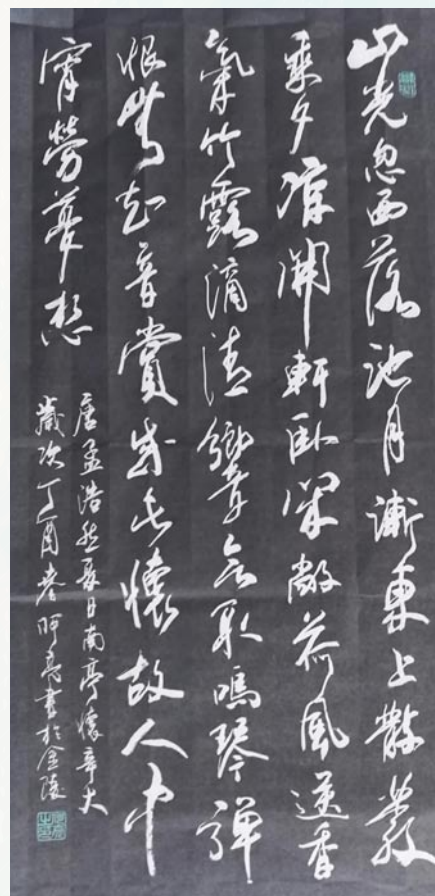 山光忽西落池月漸東上散髮
乘夕涼開軒臥閑敞荷風送香
氣竹露滴清響欲取鳴琴彈
恨無知音賞感此懷故人中
宵勞夢想
唐孟浩然夏日南亭懷辛大
歲次丁酉春阿亮書於金陵